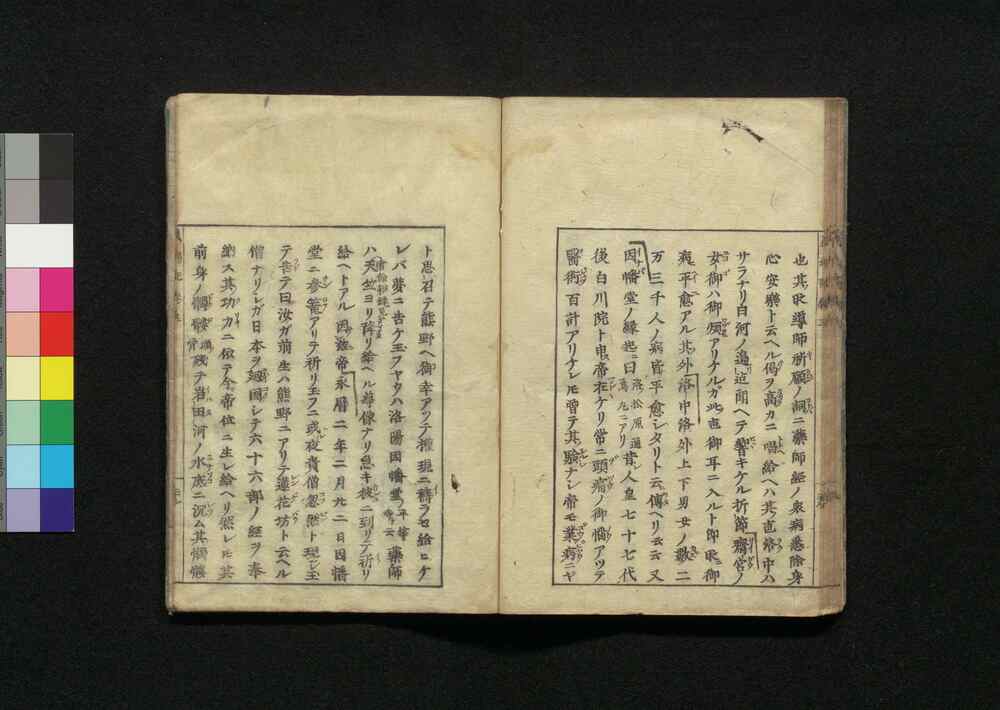 也其時導師祈願ノ詞ニ藥師經ノ衆病悉除身
心安樂ト云ヘル偈ヲ高カニ唱給ヘハ其直洛中ハ
サラナリ白河ノ邉近聞ヘテ響キケル折節齋宮ノ
女御ハ御風アリケルガ此直御耳ニ入ルト即時御
病平愈アル其外洛中洛外上下男女ノ數二
万三千人ノ病皆平愈シタリト云傳ヘリ云云又
因幡堂ノ縁起ニ曰洛松原通烏丸ニアリ昔シ人皇七十七代
後白川院ト申帝在ケリ常ニ頭痛ノ御惱アツテ
醫術百計アリナレモ曾テ其驗ナシ帝モ業病ニヤ
ト思召テ熊野ヘ御幸アツテ權現ニ祷ラセ給ヒケ
レバ夢ニ告ケ玉フヤウハ洛陽因幡堂平等寺ト云藥師
ハ天竺ヨリ降リ給ヘル尊像ナリ急キ彼ニ到リテ祈リ
給ヘトアル因茲帝永暦二年二月九二日因幡
堂ニ参籠アリテ祈リ玉フニ或夜貴僧忽然ト現レ玉
テ告テ曰汝ガ前生ハ熊野ニアリテ蓮花坊ト云ヘル
僧ナリシガ日本ヲ廻国シテ六十六部ノ經ヲ奉
納ス其功力ニ依テ今帝位ニ生レ給ヘリ然レモ其
前身ノ髑髏殘テ岩田河ノ水底ニ沉ム其髑髏